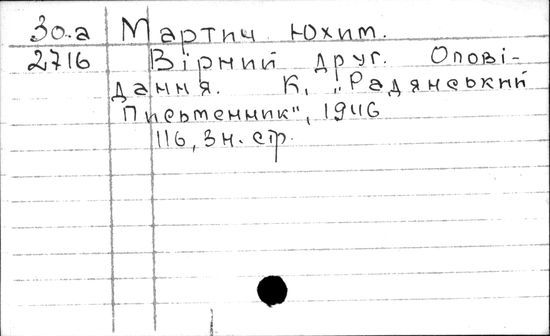 Зо.а Мартич Юхим.
2716 Вірний друг. Опові-
дання. К, „Радянський
Письменник", 1946
116, 3 н. стр.